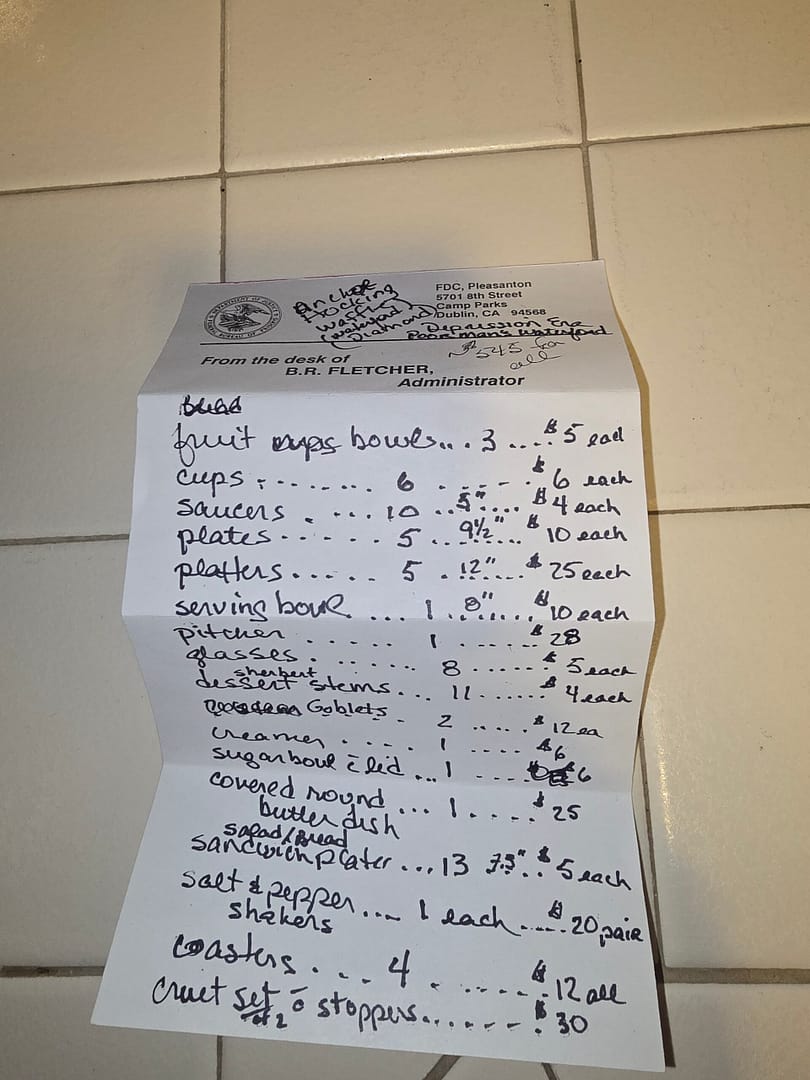 Anchor
Hocking
Waffle
(Waterford)
Diamond
FDC, Pleasanton
5701 8th Street
Camp Parks
Dublin, CA 94568
Depression Era
Poor mans Waterford
$545 for
all
From the desk of
B.R. FLETCHER,
Administrator
fruit bowls... 3 .... $5 each
cups ......... 6 ...... $6 each
saucers . ... 10 .. 5" .... $4 each
plates ..... 5 . 9½" ... $10 each
platters ..... 5 . 12" .... $25 each
serving bowl ... 1 . 8" ...... $10 each
pitcher ..... 1 ...... $28
glasses ........ 8 ...... $5 each
sherbert
dessert stems... 11 ...... $4 each
Goblets . 2 ..... $12 ea
creamer .... 1 .... $6
sugar bowl c̄ lid ... 1 .... $6
covered round ... 1 .... $25
butter dish
salad/Bread
sandwich plater ... 13 7.5" .. $5 each
salt & pepper ... 1 each ..... $20 pair
shakers
coasters . ... 4 ...... $12 all
cruet set c̄ stoppers....... $30
of 2